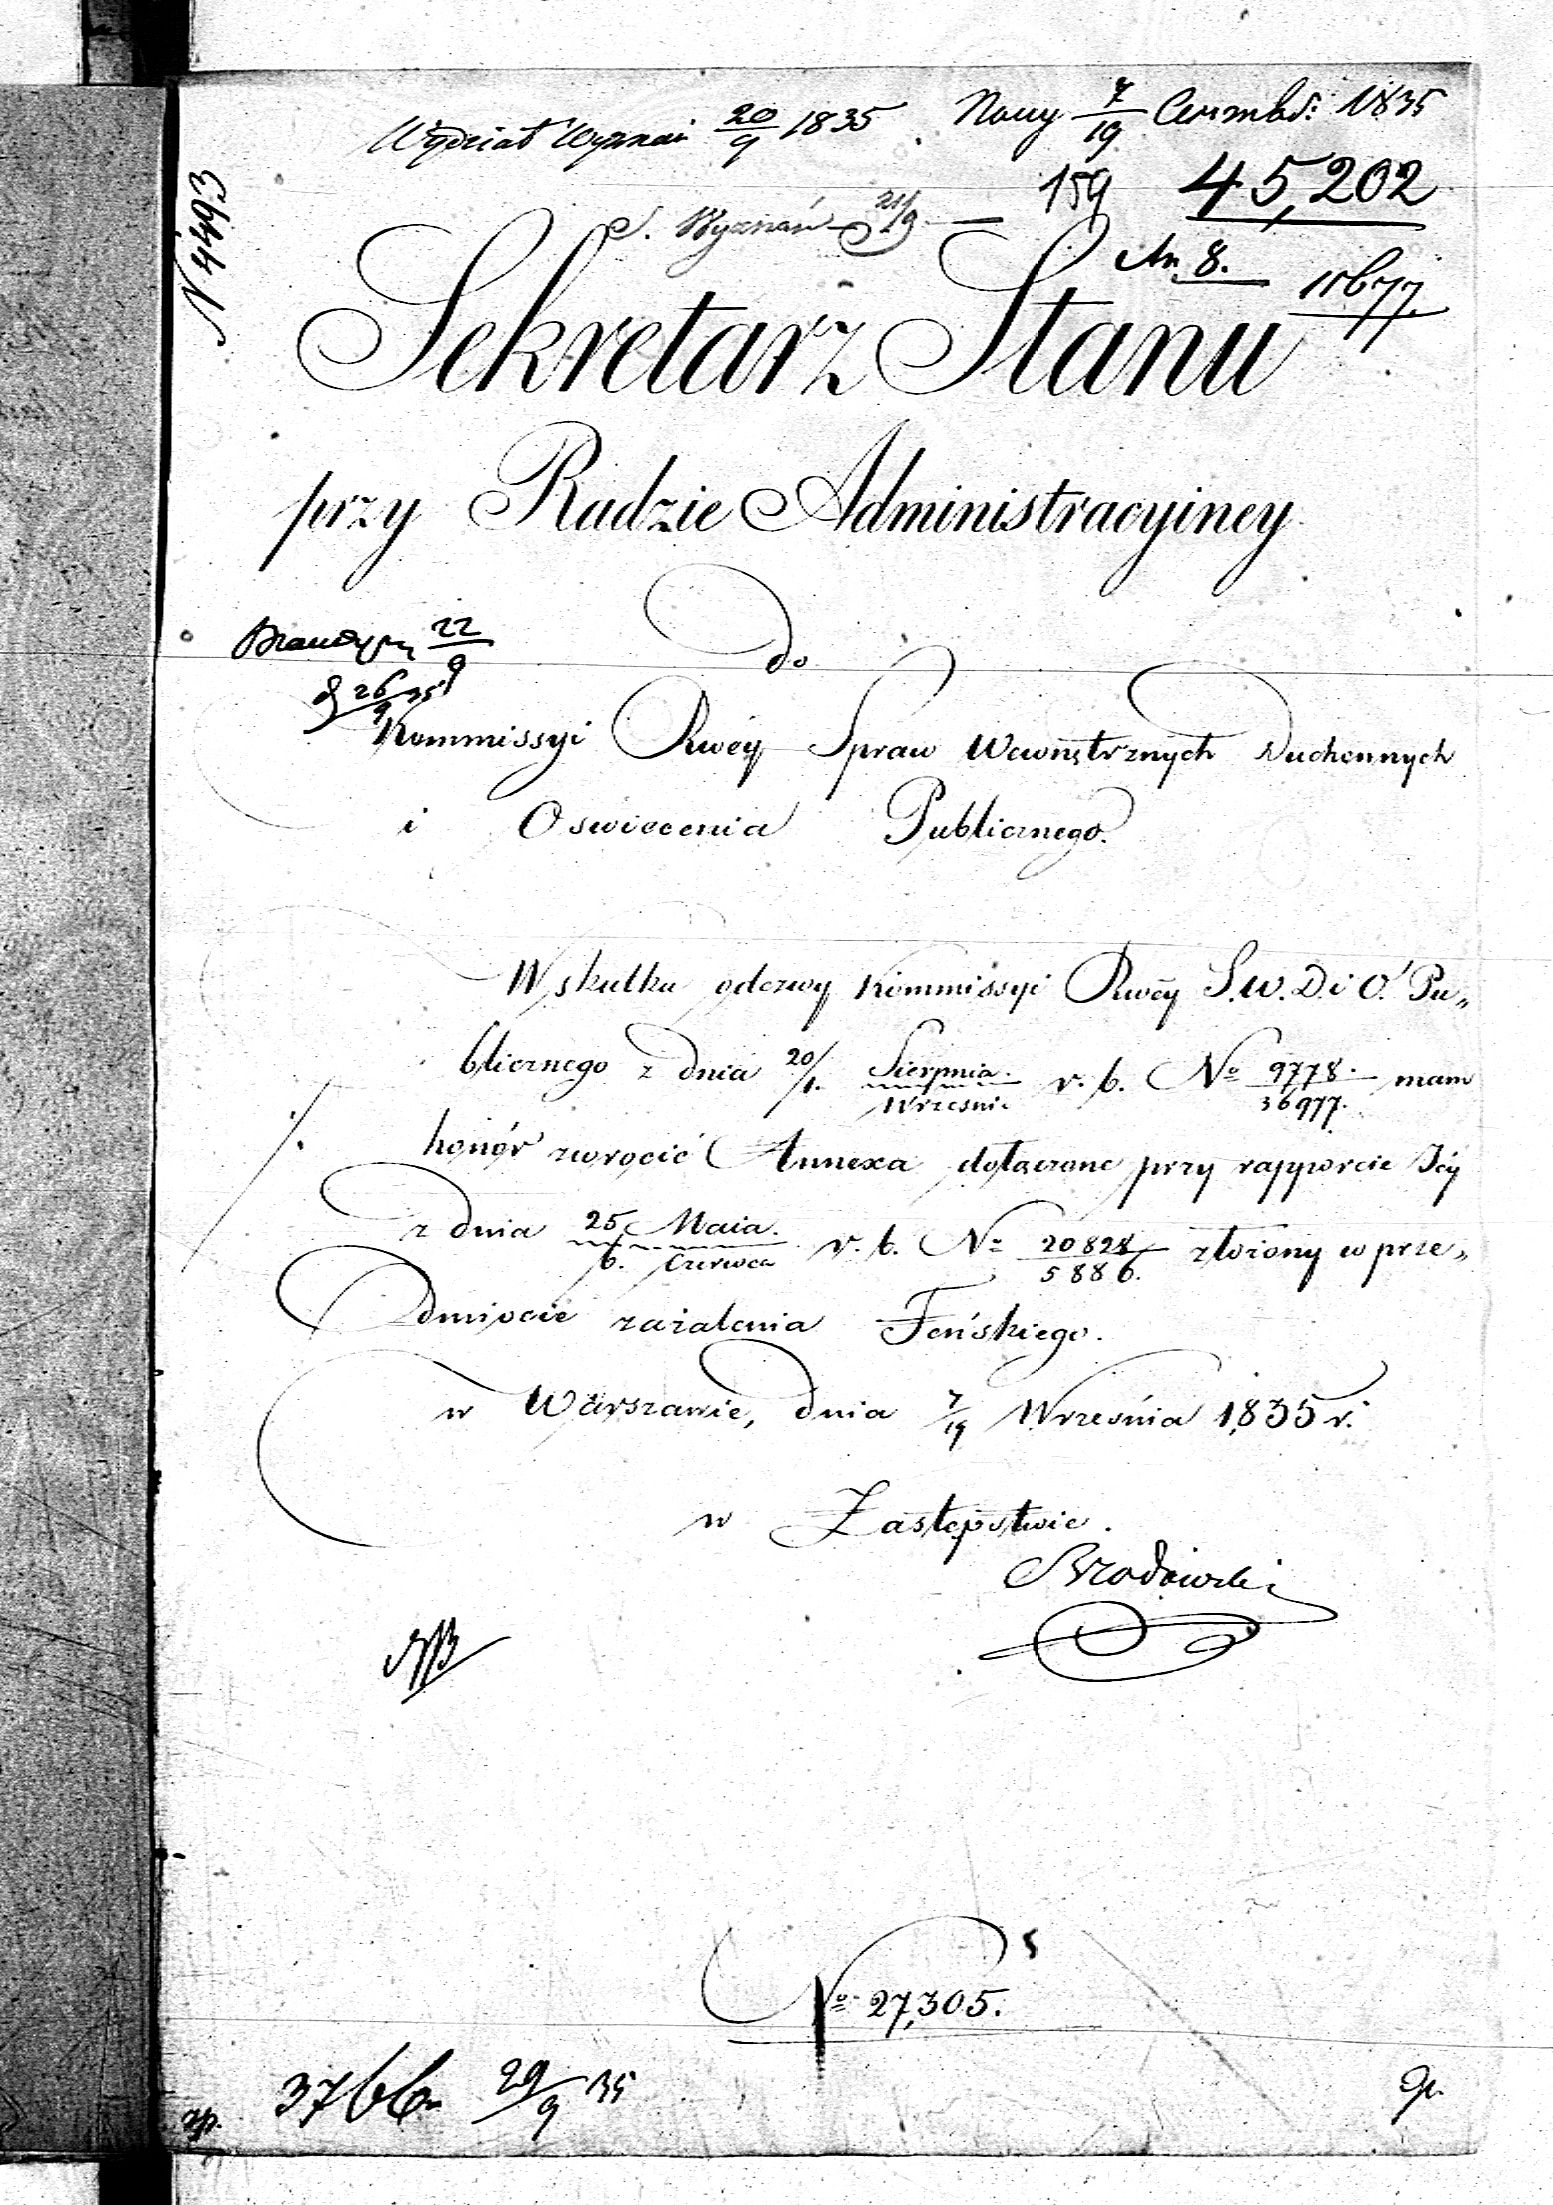 Wydział Wyznań 20/9 1835
7/19 1835
159 45,202
S. Wyznań 21/9
An. 8.
11677
N 4493
Sekretarz Stanu
przy Radzie Administracyiney
22/9
26/9 35
do
Kommissyi Rwéy Spraw Wewnętrznych Duchownych
i Oswiecenia Publicznego.
W skutku odezwy Kommissyi Rwéy S. W. D. i O. Pu„
blicznego z dnia 20/1. Sierpnia/Wrzesni. r. b. No 9778./36977. mam
honór zwrocić Annexa dołaczone przy rapporcie Jéy
z dnia 25 Maia./6. Czerwca r. b. No 20828/5886. złożony w prze„
dmiocie zażalenia Feńskiego.
w Warszawie, dnia 7/19 Września 1835 r.
w Zastępstwie.
Brodowski
No 27,305.
3766 29/9 35